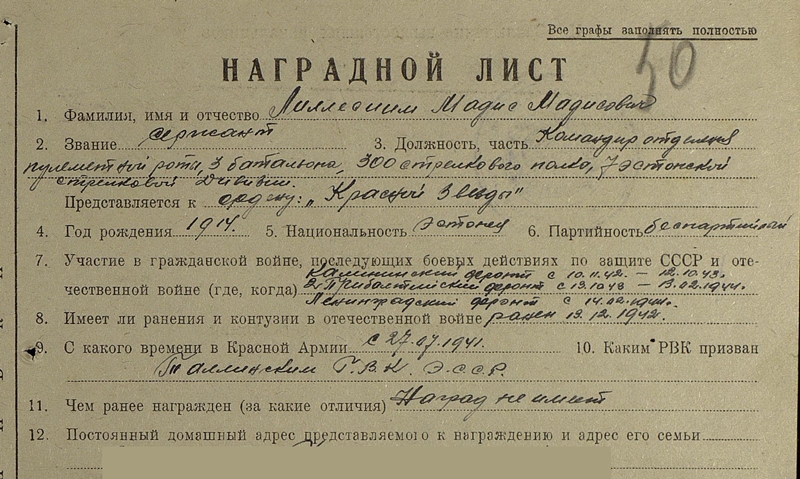 Все графы заполнять полностью
50
НАГРАДНОЙ ЛИСТ
1. Фамилия, имя и отчество Лиллеоиим Мадис Мадисович
2. Звание сержант 3. Должность, часть Командир отделения
пулеметной роты, 3 баталиона, 300 стрелкового полка, 7 Эстонской
стрелковой Дивизии.
Представляется к ордену: „Красной Звезды"
4. Год рождения 1914. 5. Национальность Эстонец 6. Партийность беспартийный
7. Участие в гражданской войне, последующих боевых действиях по защите СССР и оте-
Калининский фронт с 10.11.42. — 12.10.43.
чественной войне (где, когда) 2 Прибалтийский фронт с 13.10.43 — 13.02.1944.
Ленинградский фронт с 14.02.1944.
8. Имеет ли ранения и контузии в отечественной войне ранен 13.12.1942.
9. С какого времени в Красной Армии с 27.07.1941. 10. Каким РВК призван
Таллинским Г.В.К. Э.С.С.Р.
11. Чем ранее награжден (за какие отличия) Наград не имеет
12. Постоянный домашный адрес представляемого к награждению и адрес его семьи